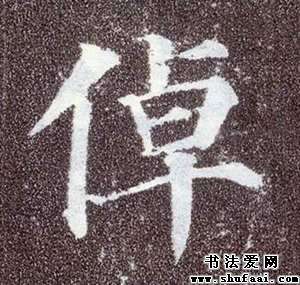 倬
书法爱网
www.shufaai.com